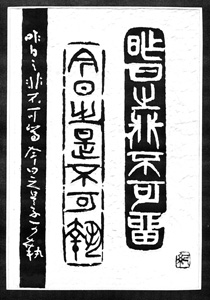 昨日之非不可留
今日之是不可執
昨日之非不可留今日之是不可執